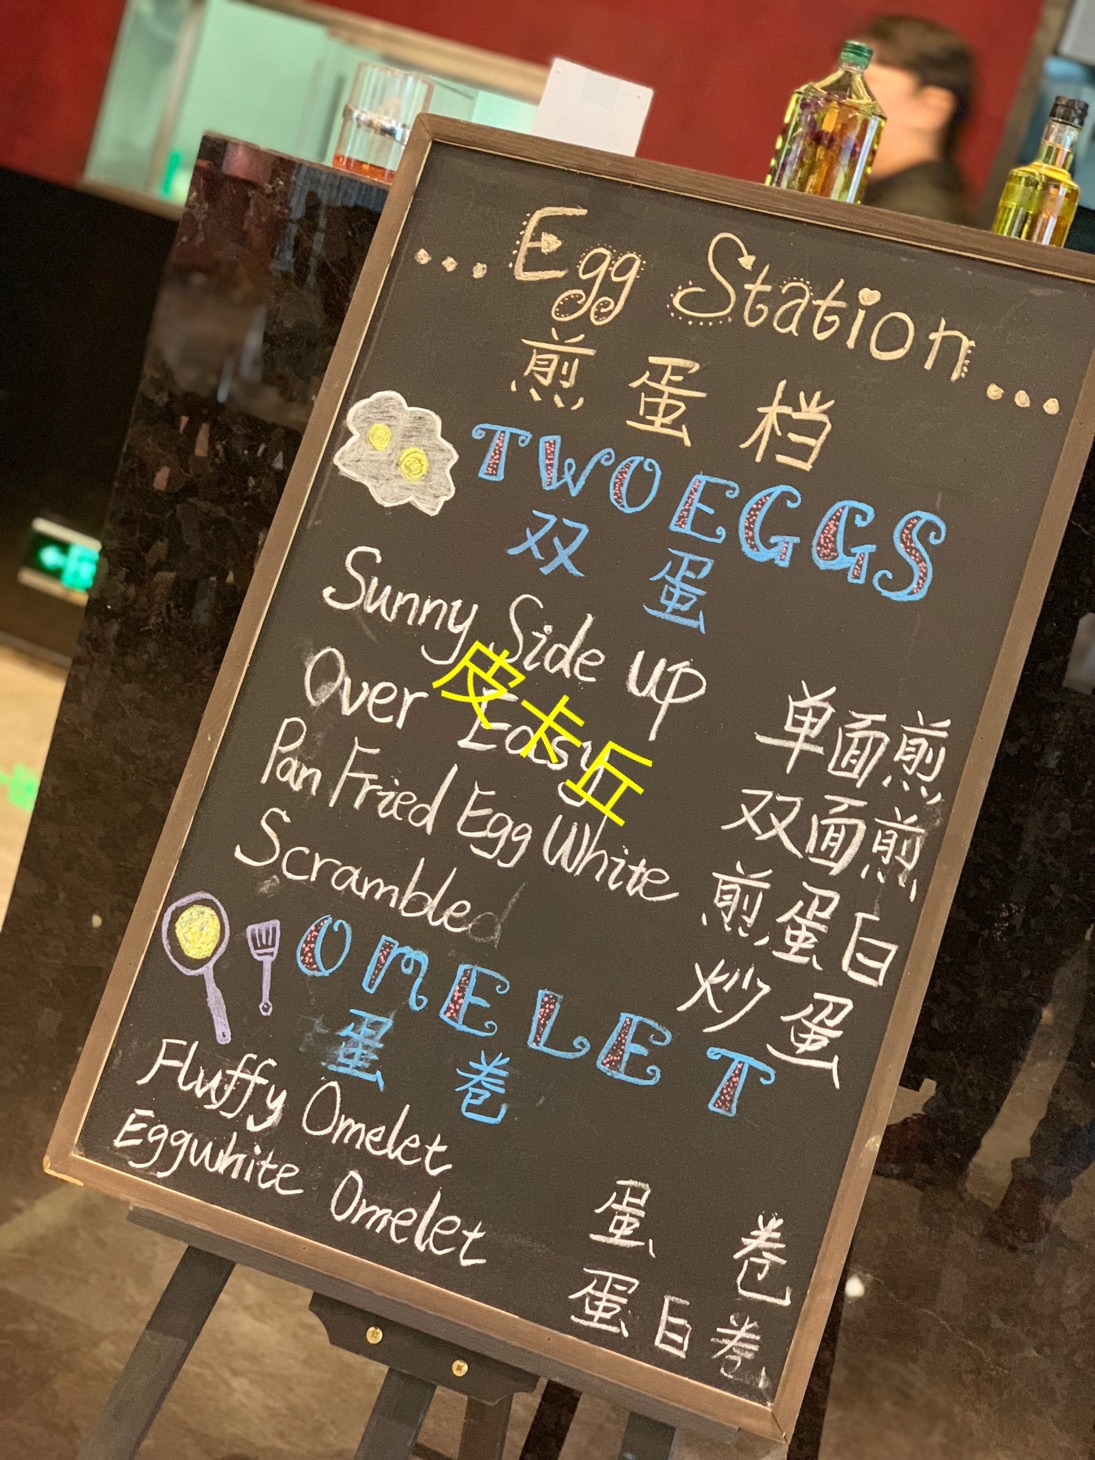 ...Egg Station...
煎蛋档
TWO EGGS
双蛋
Sunny Side up 单面煎
Over Easy 双面煎
Pan Fried Egg White 煎蛋白
Scrambled 炒蛋
OMELET
蛋卷
Fluffy Omelet 蛋卷
Eggwhite Omelet 蛋白卷
皮卡丘